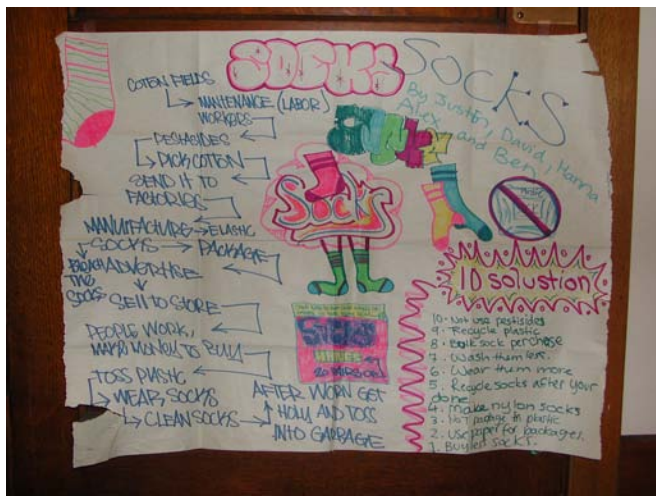 SOCKS
SOCKS
By Justin, David, Hanna
Alex, and Ben
COTTON FIELDS
MAINTENANCE (LABOR)
WORKERS
PESTASIDES
PICK COTTON
SEND IT TO
FACTORIES
MANUFACTURE → ELASTIC
SOCKS → PACKAGE
BLEACH
THE
SOCKS
ADVERTISE
SELL TO STORE
PEOPLE WORK,
MAKE MONEY TO BUY
TOSS PLASTIC
WEAR SOCKS
CLEAN SOCKS
AFTER WORN GET
HOLY AND TOSS
INTO GARBAGE
Socks
SOCKS
20 PAIRS
10 solustion
10. Not use pestisides
9. Recycle plastic
8. Bulk sock perchase
7. Wash them less.
6. Wear them more
5. Recycle socks after your
done
4. make nylon socks
3. Not package in plastic
2. Use paper for packages.
1. Buy less socks.